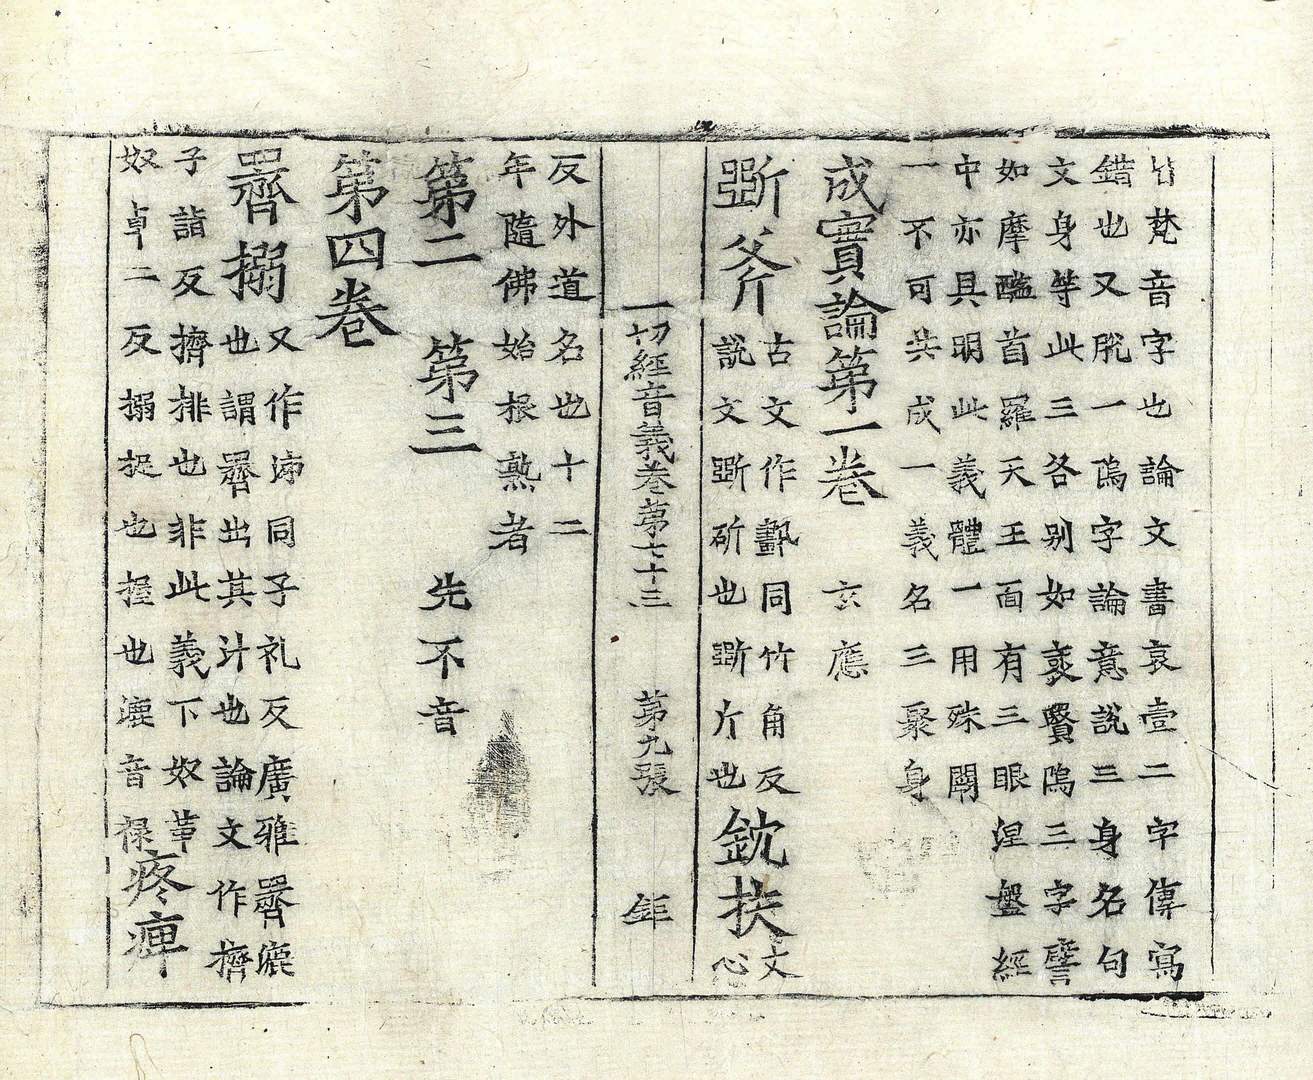 皆梵音字也論文書哀壹二字傳寫
錯也又脫一塢字論意說三身名句
文身等此三各别如裒賢塢三字譬
如摩醯首羅天王面有三眼涅盤經
中亦具明此義體一用殊闕
一不可共成一義名三聚身
成實論第一卷 玄應
斵斧 古文作斲同竹角反
說文斵斫也斵斤也 鈂抶 文
心
一切經音義卷第七十三 第九張 鉅
反外道名也十二
年隨佛始根熟者
第二 第三 先不音
第四卷
搦 又作泲同子礼反廣雅漉
也謂出其汁也論文作擠
子詣反擠排也非此義下奴革
奴卓二反搦捉也握也漉音祿 疼痺